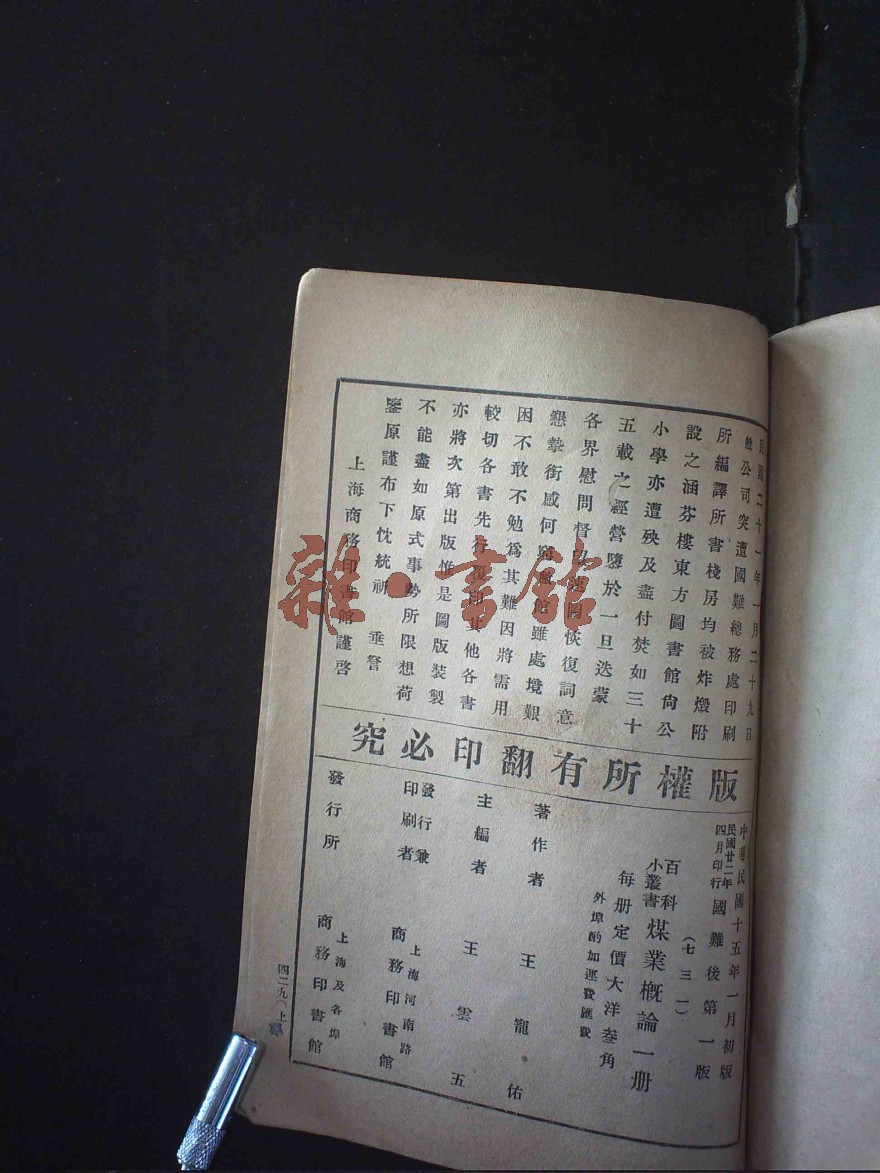 民國二十一年一月二十九日
敝公司突遭國難總務處印刷
所編譯所書棧房均被炸燬附
設之涵芬樓東方圖書館尙公
小學亦遭殃及盡付焚如三十
五載之經營隳於一旦迭蒙
各界慰問督促速圖恢復詞意
懇摯銜感何窮敝館雖處境艱
困不敢不勉爲其難因將需用
較切各書先行覆印其他各書
亦將次第出版惟是圖版裝製
不能盡如原式事勢所限想荷
鑒原謹布下忱統祈 垂詧
上海商務印書館謹啓
版權所有翻印必究
中華民國十五年一月初版
民國廿二年四月印行 國難後第一版
(七三一)
百科小叢書 煤業概論一册
每册定價大洋叁角
外埠酌加運費匯費
著作者 王寵佑
主編者 王雲五
發行兼印刷者 上海河南路 商務印書館
發行所 上海及各埠 商務印書館
四二九(上)
雜·書館